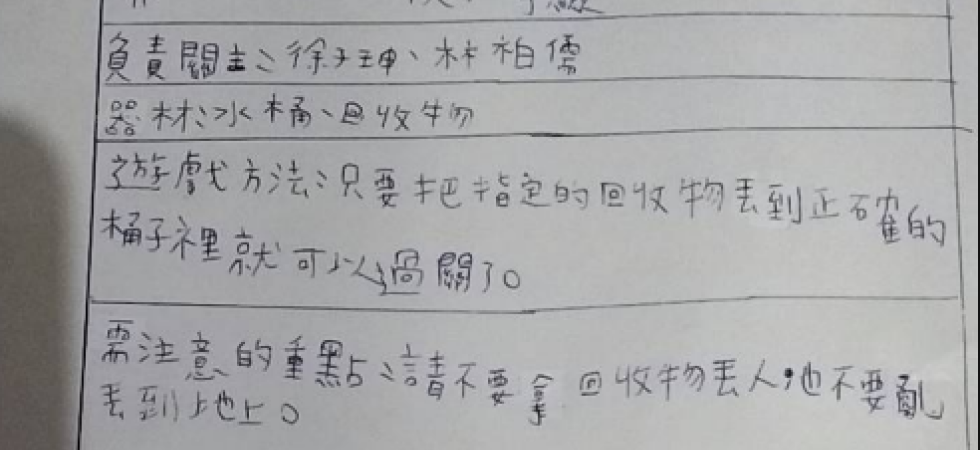 負責關主:徐子珅、林柏儒
器材:水桶、回收物
遊戲方法:只要把指定的回收物丟到正確的
桶子裡就可以過關了。
需注意的重點:請不要拿回收物丟人,也不要亂
丟到地上。